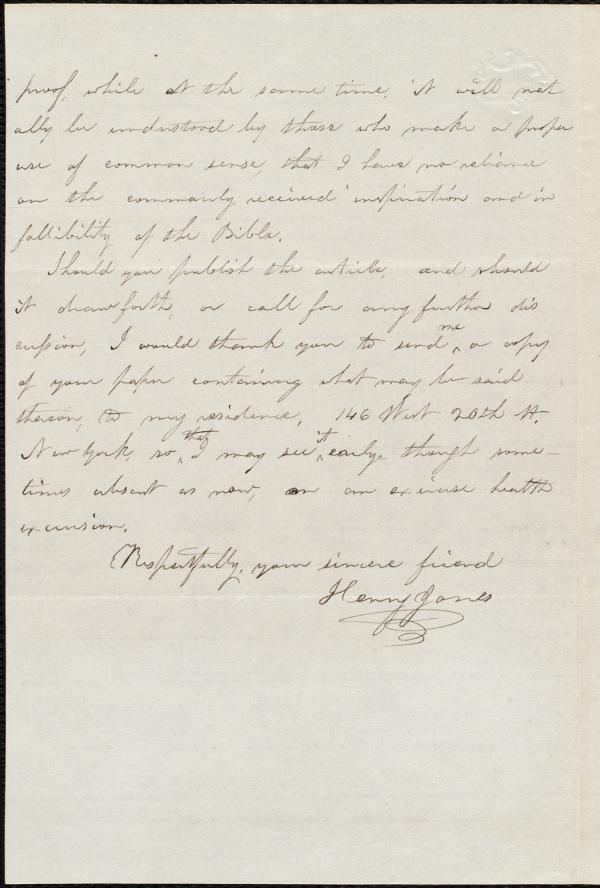 proof, while at the same time, it will nat
ally be understood by those who make a proper
use of common sense, that I have no reliance
on the commonly received inspiration and in
fallibility of the Bible.
Should you publish the article, and should
it draw forth, or call for any further dis
cussion, I would thank you to send me a copy
of your paper containing what may be said
thereon, to my residence, 146 West 20th St.
New York, so that I may see it early though some-
times absent as now, on an exercise health
excursion.
Respectfully, your sincere friend
Henry Jones